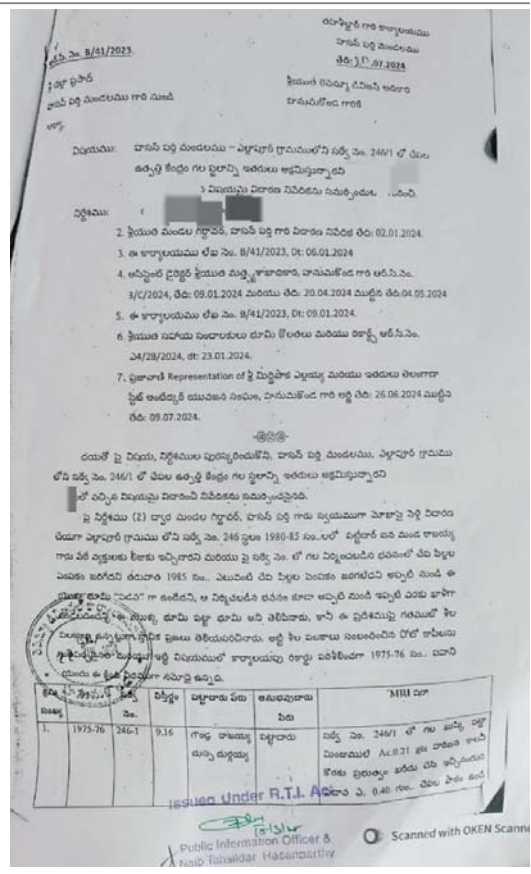 తహశీల్దార్ గారి కార్యాలయము
హసన్ పర్తి మండలము
తేది: .07.2024.
నెం. B/41/2023.
హసన్ పర్తి మండలము గారి నుండి
శ్రీయుత రెవెన్యూ డివిజన్ అధికారి
హనుమకొండ గారికి
విషయము: హసన్ పర్తి మండలము – ఎల్లాపూర్ గ్రామములోని సర్వే నెం. 246/1 లో చేపల
ఉత్పత్తి కేంద్రం గల స్థలాన్ని ఇతరులు ఆక్రమిస్తున్నారని
విషయమై విచారణ నివేదికను సమర్పించుట
నిర్దేశము:
2. శ్రీయుత మండల గిర్దావర్, హసన్ పర్తి గారి విచారణ నివేదిక తేది: 02.01.2024.
3. ఈ కార్యాలయము లేఖ నెం. B/41/2023, Dt: 06.01.2024
4. అసిస్టెంట్ డైరెక్టర్ శ్రీయుత మత్స్యశాఖాధికారి, హనుమకొండ గారి ఆర్.సి.నెం.
3/C/2024, తేది: 09.01.2024 మరియు తేది: 20.04.2024 ముట్టిన తేది:04.05.2024
5. ఈ కార్యాలయము లేఖ నెం. B/41/2023, Dt: 09.01.2024.
6. శ్రీయుత సహాయ సంచాలకులు భూమి కొలతలు మరియు రికార్డ్స్ ఆర్.సి.నెం.
ఎ4/28/2024, dt: 23.01.2024.
7. ప్రజావాణి Representation of శ్రీ మిర్దిపాక ఎల్లయ్య మరియు ఇతరులు తెలంగాణ
స్టేట్ అంబేద్కర్ యువజన సంఘం, హనుమకొండ గారి అర్జీ తేది: 26.06.2024 ముట్టిన
తేది: 09.07.2024.
దయతో పై విషయ, నిర్దేశముల పురస్కరించుకొని, హసన్ పర్తి మండలము, ఎల్లాపూర్ గ్రామము
లోని సర్వే నెం. 246/1 లో చేపల ఉత్పత్తి కేంద్రం గల స్థలాన్ని ఇతరులు ఆక్రమిస్తున్నారని
లో వచ్చిన విషయమై విచారించి నివేదికను సమర్పించడమైనది.
పై నిర్దేశము (2) ద్వారా మండల గిర్దావర్, హసన్ పర్తి గారు స్వయముగా మోకాపై వెళ్లి విచారణ
చేయగా ఎల్లాపూర్ గ్రామము లోని సర్వే నెం. 246 స్థలం 1980-85 సం..లలో పట్టేదార్ ఐన మంద రాజయ్య
గారు వేరే వ్యక్తులకు లీజుకు ఇచ్చినారని మరియు పై సర్వే నెం. లో గల నిర్మించబడిన భవనంలో చేప పిల్లల
పెంపకం జరిగేదని తరువాత 1985 సం.. ఎటువంటి చేప పిల్లల పెంపకం జరగలేదని అప్పటి నుండి ఈ
భూమి "పడావ" గా ఉండేదని, ఆ నిర్మించబడిన భవనం కూడా అప్పటి నుండి ఇప్పటి వరకు ఖాళీగా
ఈ యొక్క భూమి పట్టా భూమి అని తెలిపినారు, కానీ ఈ ప్రదేశమునై గతములో శిల
ప్రజలు తెలియపరచినారు. అట్టి శిల ఫలకాలు సంబంధించిన ఫోటో కాపీలను
ఇట్టి విషయములో కార్యాలయపు రికార్డు పరిశీలించగా 1975-76 సం.. పహణి
ఈ క్రింది విధముగా నమోదై ఉన్నది.
సంఖ్య
నెం.
విస్తీర్ణం
పట్టాదారు పేరు
అనుభవదారు
పేరు
MRI షరా
1.
1975-76
246-1
9.16
రాజయ్య
దుర్గయ్య
పట్టాదారు
సర్వే నెం. 246/1 లో గల ఖుష్కి పట్టా
Issued Under R.T.I. Act
Public Information Officer &
Naib Tahsildar Hasanparthy
Scanned with OKEN Scanne